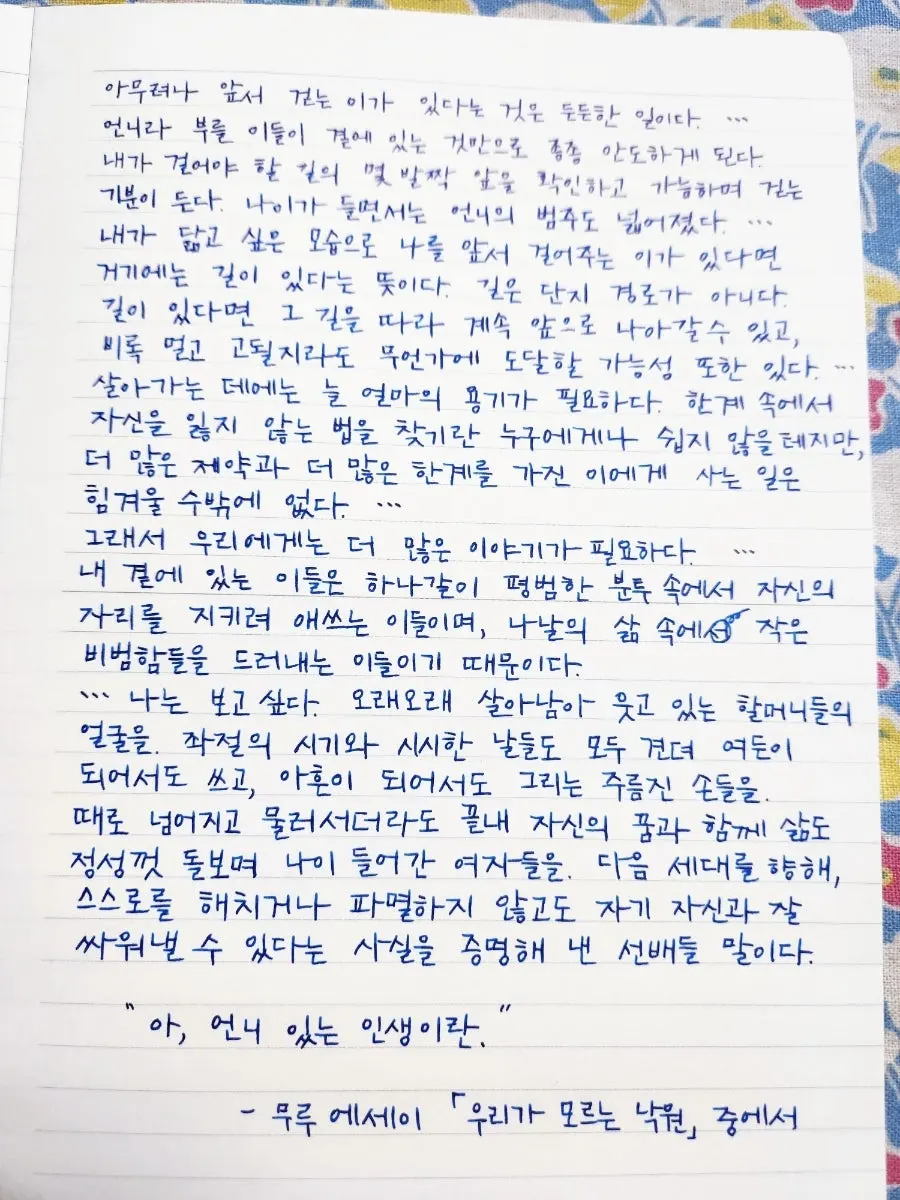 아무려나 앞서 걷는 이가 있다는 것은 든든한 일이다. …
언니라 부를 이들이 곁에 있는 것만으로 종종 안도하게 된다.
내가 걸어야 할 길의 몇 발짝 앞을 확인하고 가늠하며 걷는
기분이 든다. 나이가 들면서는 언니의 범주도 넓어졌다. …
내가 닮고 싶은 모습으로 나를 앞서 걸어주는 이가 있다면
거기에는 길이 있다는 뜻이다. 길은 단지 경로가 아니다.
길이 있다면 그 길을 따라 계속 앞으로 나아갈 수 있고,
비록 멀고 고될지라도 무언가에 도달할 가능성 또한 있다. …
살아가는 데에는 늘 얼마의 용기가 필요하다. 한계 속에서
자신을 잃지 않는 법을 찾기란 누구에게나 쉽지 않을 테지만,
더 많은 제약과 더 많은 한계를 가진 이에게 사는 일은
힘겨울 수밖에 없다. …
그래서 우리에게는 더 많은 이야기가 필요하다. …
내 곁에 있는 이들은 하나같이 평범한 분투 속에서 자신의
자리를 지키려 애쓰는 이들이며, 나날의 삶 속에서 작은
비범함들을 드러내는 이들이기 때문이다.
… 나는 보고 싶다. 오래오래 살아남아 웃고 있는 할머니들의
얼굴을. 좌절의 시기와 시시한 날들도 모두 견뎌 여든이
되어서도 쓰고, 아흔이 되어서도 그리는 주름진 손들을.
때로 넘어지고 물러서더라도 끝내 자신의 꿈과 함께 삶도
정성껏 돌보며 나이 들어간 여자들을. 다음 세대를 향해,
스스로를 해치거나 파멸하지 않고도 자기 자신과 잘
싸워낼 수 있다는 사실을 증명해 낸 선배들 말이다.
"아, 언니 있는 인생이란."
- 무루 에세이 「우리가 모르는 낙원」 중에서